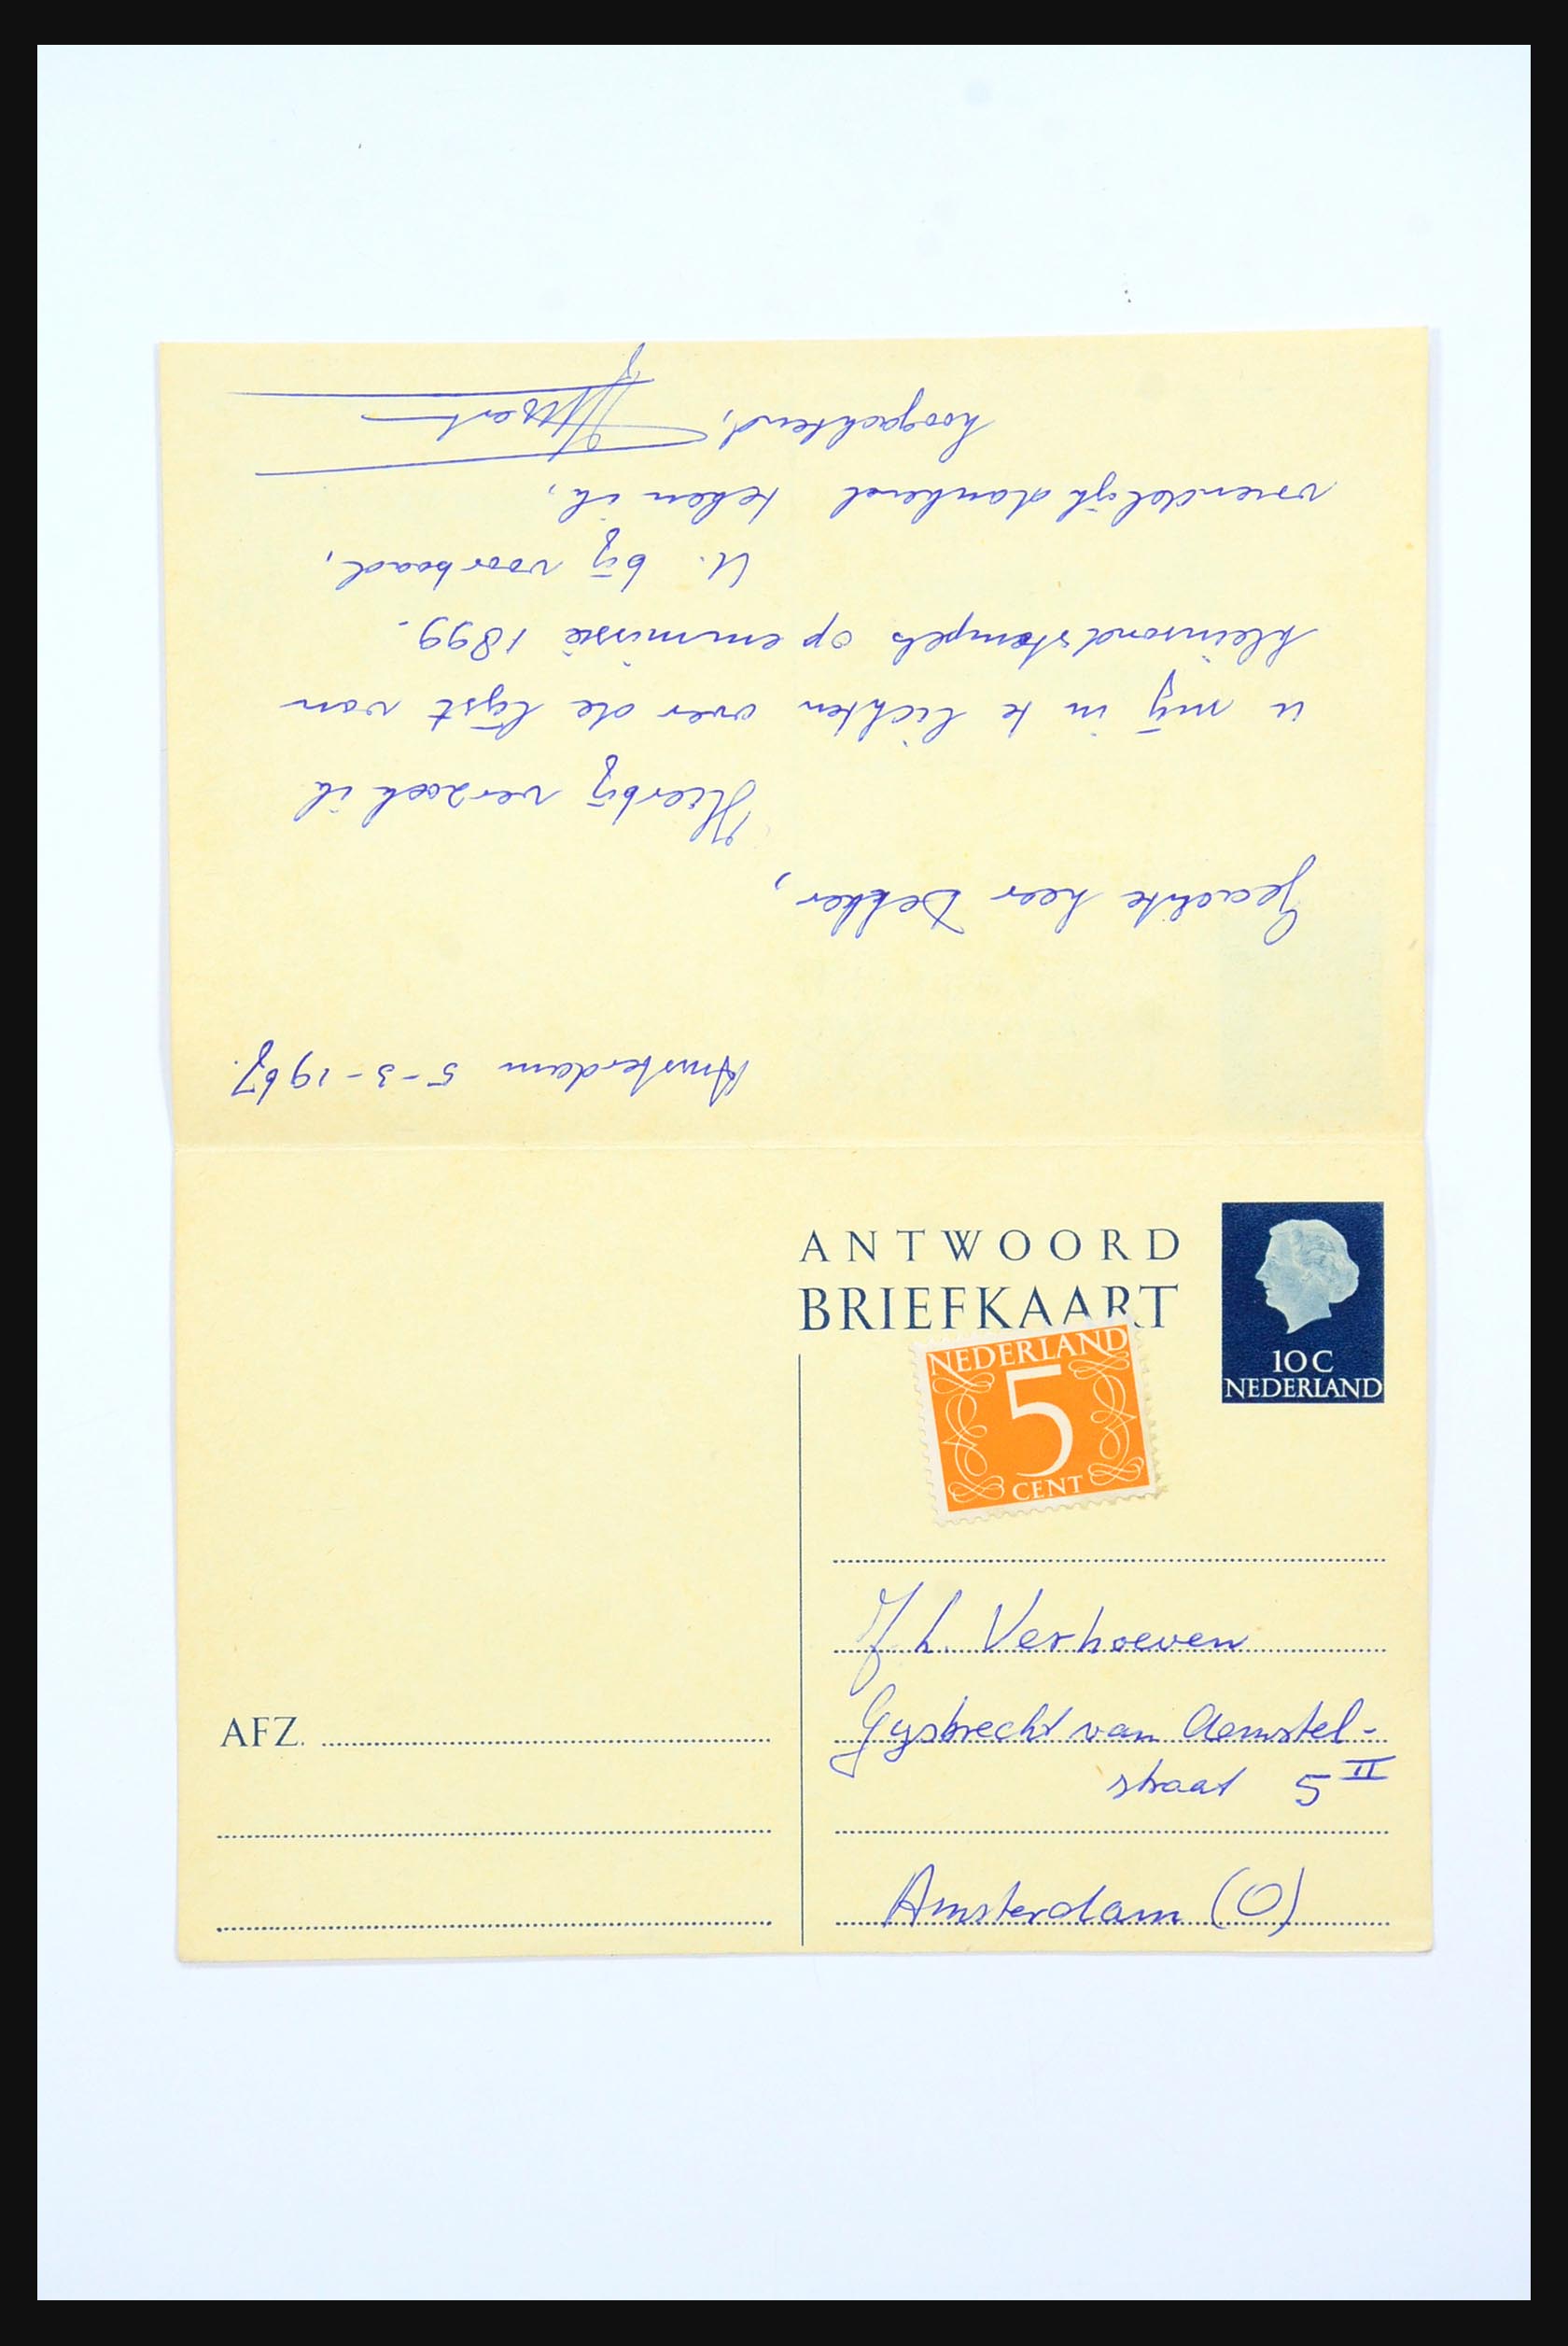 Amsterdam 5-3-1967.
Geachte heer Dekker,
Hierbij verzoek ik
u mij in te lichten over de lijst van
kleinrondstempels op emmissie 1899.
U. bij voorbaad,
vriendelijk dankend teken ik,
hoogachtend,
ANTWOORD
BRIEFKAART
10 C
NEDERLAND
NEDERLAND
5
CENT
J. L. Verhoeven
Gysbrecht van Aemstel-
straat 5 II
Amsterdam (O)
AFZ.